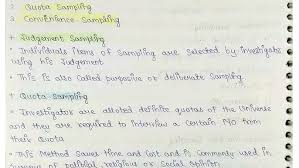 2 Quota Sampling
3. Convenience Sampling
+ Judgement Sampling
• Individuals items of Sampling are selected by investigate
using his Judgement
• This is also called purposive or deliberate Sampling
+ Quota Sampling
• Investigator are alloted definite quotas of the Universe
and they are required to interview a certain No from
their Quota
• This Method Saves time and Cost and is Commonly used in
of political, religious or Social Opinion